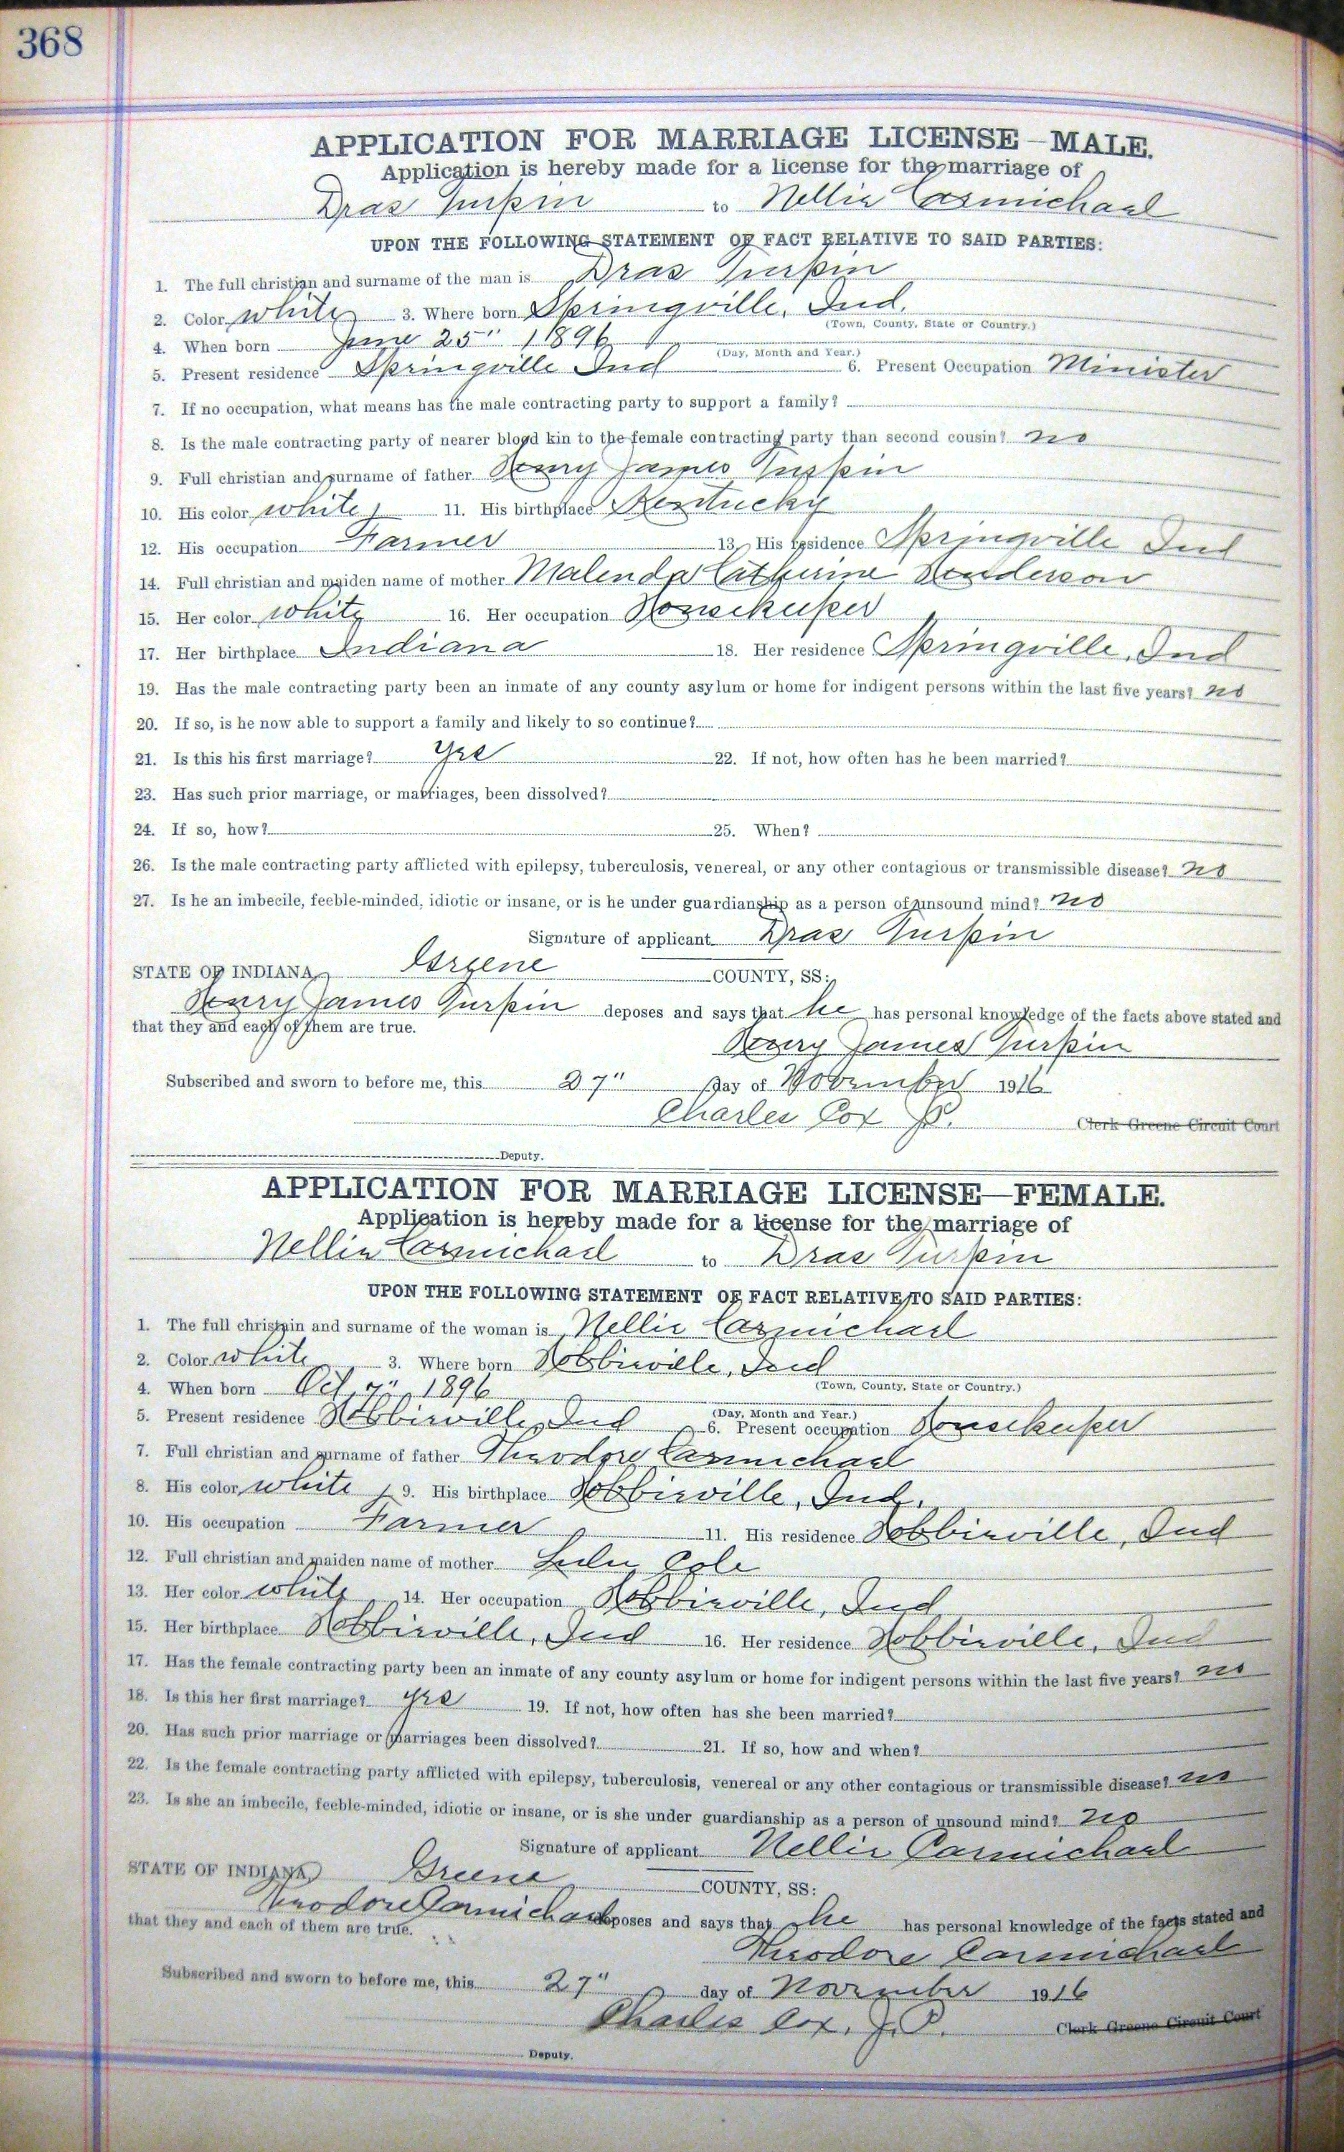 368
APPLICATION FOR MARRIAGE LICENSE—MALE.
Application is hereby made for a license for the marriage of
Dras Turpin to Nellie Carmichael
UPON THE FOLLOWING STATEMENT OF FACT RELATIVE TO SAID PARTIES:
1. The full christian and surname of the man is Dras Turpin
2. Color white 3. Where born Springville, Ind.
(Town, County, State or Country.)
4. When born June 25" 1896
(Day, Month and Year.)
5. Present residence Springville Ind 6. Present Occupation Minister
7. If no occupation, what means has the male contracting party to support a family?
8. Is the male contracting party of nearer blood kin to the female contracting party than second cousin? no
9. Full christian and surname of father Henry James Turpin
10. His color white 11. His birthplace Kentucky
12. His occupation Farmer 13. His residence Springville Ind
14. Full christian and maiden name of mother Malenda Catherine Henderson
15. Her color white 16. Her occupation Housekeeper
17. Her birthplace Indiana 18. Her residence Springville, Ind
19. Has the male contracting party been an inmate of any county asylum or home for indigent persons within the last five years? no
20. If so, is he now able to support a family and likely to so continue?
21. Is this his first marriage? yes 22. If not, how often has he been married?
23. Has such prior marriage, or marriages, been dissolved?
24. If so, how? 25. When?
26. Is the male contracting party afflicted with epilepsy, tuberculosis, venereal, or any other contagious or transmissible disease? no
27. Is he an imbecile, feeble-minded, idiotic or insane, or is he under guardianship as a person of unsound mind? no
Signature of applicant Dras Turpin
STATE OF INDIANA, Greene COUNTY, SS:
Henry James Turpin deposes and says that he has personal knowledge of the facts above stated and
that they and each of them are true.
Henry James Turpin
Subscribed and sworn to before me, this 27" day of November 1916
Charles Cox J.P. Clerk Greene Circuit Court
Deputy.
APPLICATION FOR MARRIAGE LICENSE—FEMALE.
Application is hereby made for a license for the marriage of
Nellie Carmichael to Dras Turpin
UPON THE FOLLOWING STATEMENT OF FACT RELATIVE TO SAID PARTIES:
1. The full christain and surname of the woman is Nellie Carmichael
2. Color white 3. Where born Hobbieville, Ind
(Town, County, State or Country.)
4. When born Oct, 7" 1896
(Day, Month and Year.)
5. Present residence Hobbieville, Ind 6. Present occupation Housekeeper
7. Full christian and surname of father Theodore Carmichael
8. His color white 9. His birthplace Hobbieville, Ind.
10. His occupation Farmer 11. His residence Hobbieville, Ind
12. Full christian and maiden name of mother Lulu Cole
13. Her color white 14. Her occupation Hobbieville, Ind
15. Her birthplace Hobbieville, Ind 16. Her residence Hobbieville, Ind
17. Has the female contracting party been an inmate of any county asylum or home for indigent persons within the last five years? no
18. Is this her first marriage? yes 19. If not, how often has she been married?
20. Has such prior marriage or marriages been dissolved? 21. If so, how and when?
22. Is the female contracting party afflicted with epilepsy, tuberculosis, venereal or any other contagious or transmissible disease? no
23. Is she an imbecile, feeble-minded, idiotic or insane, or is she under guardianship as a person of unsound mind? no
Signature of applicant Nellie Carmichael
STATE OF INDIANA, Greene COUNTY, SS:
Theodore Carmichael deposes and says that he has personal knowledge of the facts stated and
that they and each of them are true.
Theodore Carmichael
Subscribed and sworn to before me, this 27" day of November 1916
Charles Cox, J.P. Clerk Greene Circuit Court
Deputy.